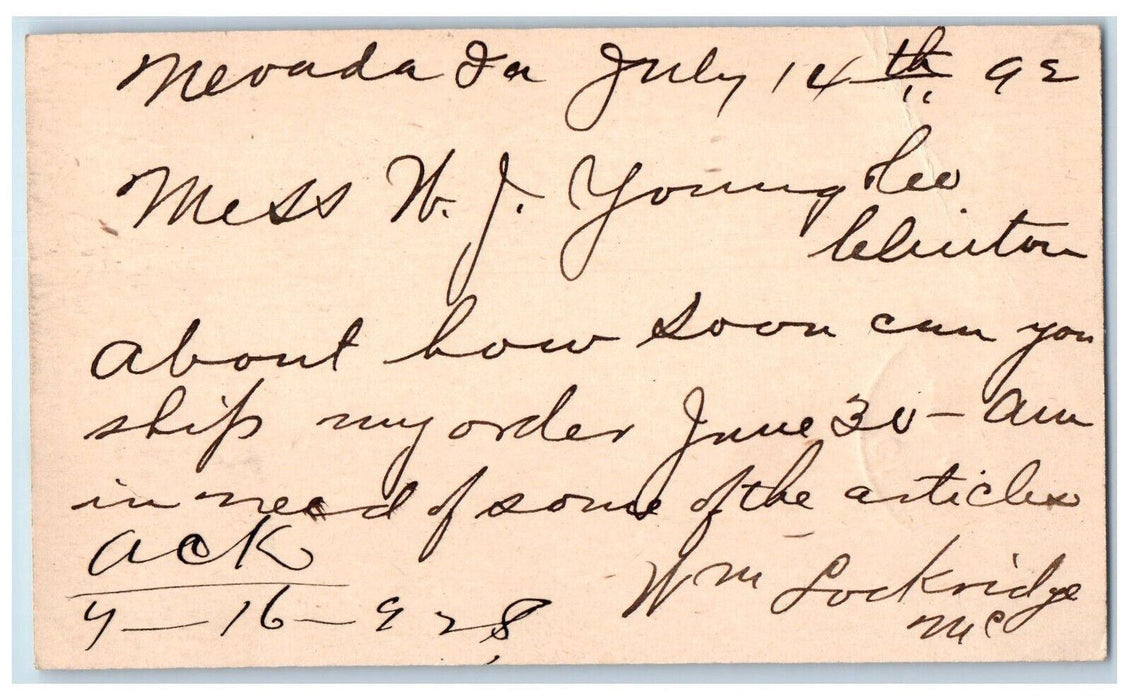 Nevada Ia July 14th 92
Mess W. J. Young & Co
Clinton
About how soon can you
ship my order June 30 - am
in need of some of the articles
Wm Lockridge
Mc
Ack
7-16-92